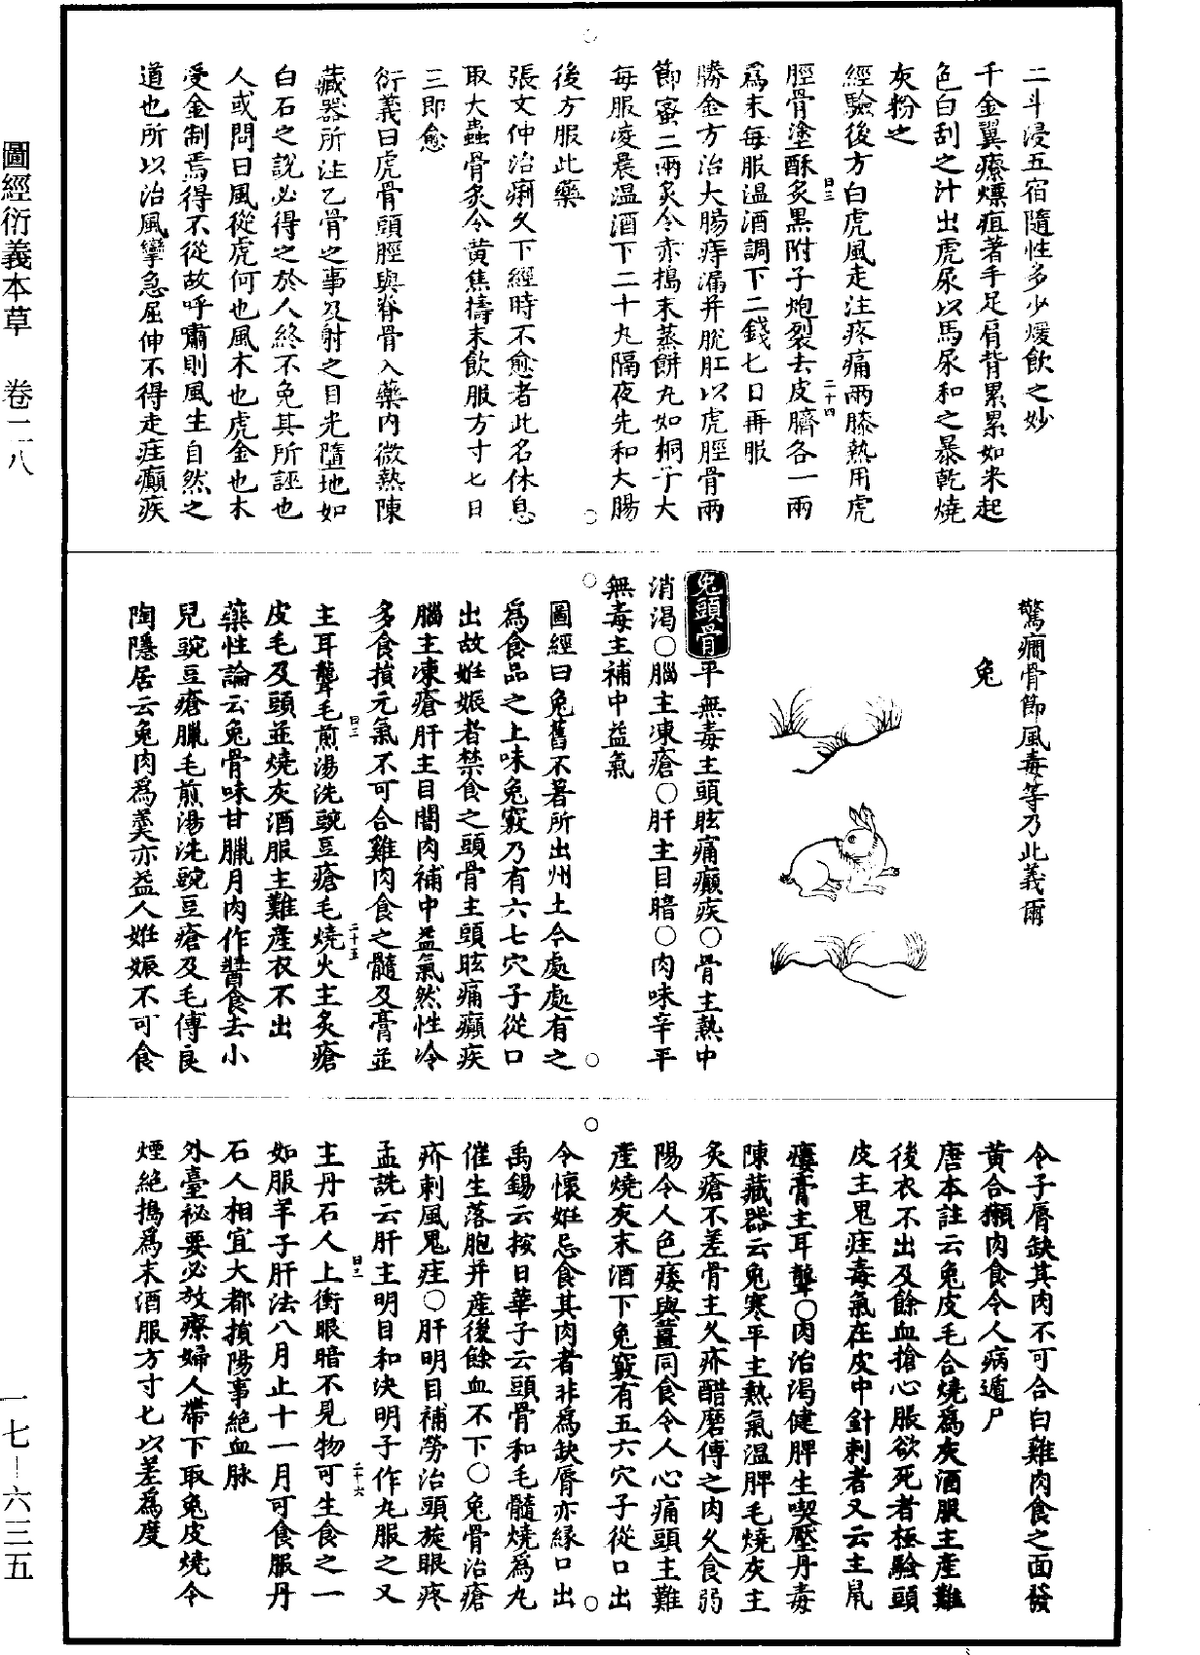 圖經衍義本草　卷二八
一七—六三五
二斗浸五宿隨性多少煖飲之妙
千金翼療㾦疽著手足肩背累累如米起
色白刮之汁出虎尿以馬尿和之暴乾燒
灰粉之
經驗後方白虎風走注疼痛兩膝熱用虎
脛骨塗酥炙黑附子炮裂去皮臍各一兩
爲末每服温酒調下二錢七日再服
勝金方治大腸痔漏并脫肛以虎脛骨兩
節蜜二兩炙令赤搗末蒸餅丸如桐子大
每服凌晨温酒下二十丸隔夜先和大腸
後方服此藥
張文仲治痢久下經時不愈者此名休息
取大蟲骨炙令黄焦擣末飲服方寸匕日
三即愈
衍義曰虎骨頭脛與脊骨入藥内微熱陳
藏器所注乙骨之事及射之目光墮地如
白石之說必得之於人終不免其所誣也
人或問曰風從虎何也風木也虎金也木
受金制焉得不從故呼嘯則風生自然之
道也所以治風攣急屈伸不得走疰癲疾
驚癇骨節風毒等乃此義爾
兔
兔頭骨平無毒主頭眩痛癲疾○骨主熱中
消渴○腦主凍瘡○肝主目暗○肉味辛平
無毒主補中益氣
圖經曰兔舊不著所出州土今處處有之
爲食品之上味兔竅乃有六七穴子從口
出故姙娠者禁食之頭骨主頭眩痛癲疾
腦主凍瘡肝主目闇肉補中益氣然性冷
多食損元氣不可合雞肉食之髓及膏並
主耳聾毛煎湯洗豌豆瘡毛燒火主炙瘡
皮毛及頭並燒灰酒服主難產衣不出
藥性論云兔骨味甘臘月肉作醬食去小
兒豌豆瘡臘毛煎湯洗豌豆瘡及毛傅良
陶隱居云兔肉爲羹亦益人姙娠不可食
令子脣缺其肉不可合白雞肉食之面發
黄合獺肉食令人病遁尸
唐本註云兔皮毛合燒爲灰酒服主產難
後衣不出及餘血搶心脹欲死者極驗頭
皮主鬼疰毒氣在皮中針刺者又云主鼠
瘻膏主耳聾○肉治渴健脾生喫壓丹毒
陳藏器云兔寒平主熱氣温脾毛燒灰主
炙瘡不差骨主久疥醋磨傅之肉久食弱
陽令人色痿與薑同食令人心痛頭主難
產燒灰末酒下兔竅有五六穴子從口出
令懷姙忌食其肉者非爲缺脣亦緣口出
禹錫云按日華子云頭骨和毛髓燒爲丸
催生落胞并產後餘血不下○兔骨治瘡
疥刺風鬼疰○肝明目補勞治頭旋眼疼
孟詵云肝主明目和決明子作丸服之又
主丹石人上衝眼暗不見物可生食之一
如服羊子肝法八月止十一月可食服丹
石人相宜大都損陽事絶血脉
外臺祕要必效療婦人帶下取兔皮燒令
煙絶搗爲末酒服方寸匕以差爲度